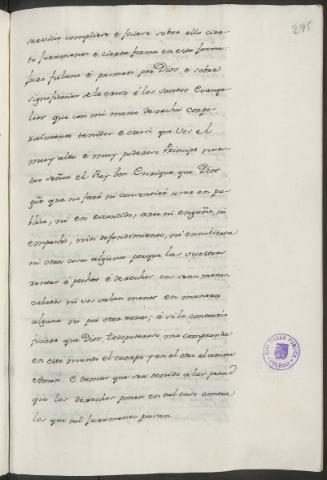 295
servicio compliere é fuese sobre ello cier-
to juramento é cierta forma en esta forma:
Juro fulano é prometo por Dios é sobre
significacion de la cruz é los santos Evange-
lios que con mi mano derecha corpo-
ralmente tenidos é que á vos el
muy alto é muy poderoso Principe nues-
tro señor el Rey don Enrique que Dios
gũe que no faré ni consentiré usar en pu-
blico, ni en escondido, arte ni engaño, ni
empacho, nin defendimiento, ni encubierta
ni otra cosa alguna porque las vuestras
rentas é pechos é derechos vos sean menos-
cabados ni vos valan menos en manera
alguna ni por otra razon; é si lo contrario
ficiere que Dios todopoderoso me comprenda
en este mundo el cuerpo y en el otro el anima
Amen. E demas que sea tenido á las penas
que los derechos ponen en tal caso contra
los que tal juramento pasan.
BIBLIOTECA PUBLICA
TOLEDO